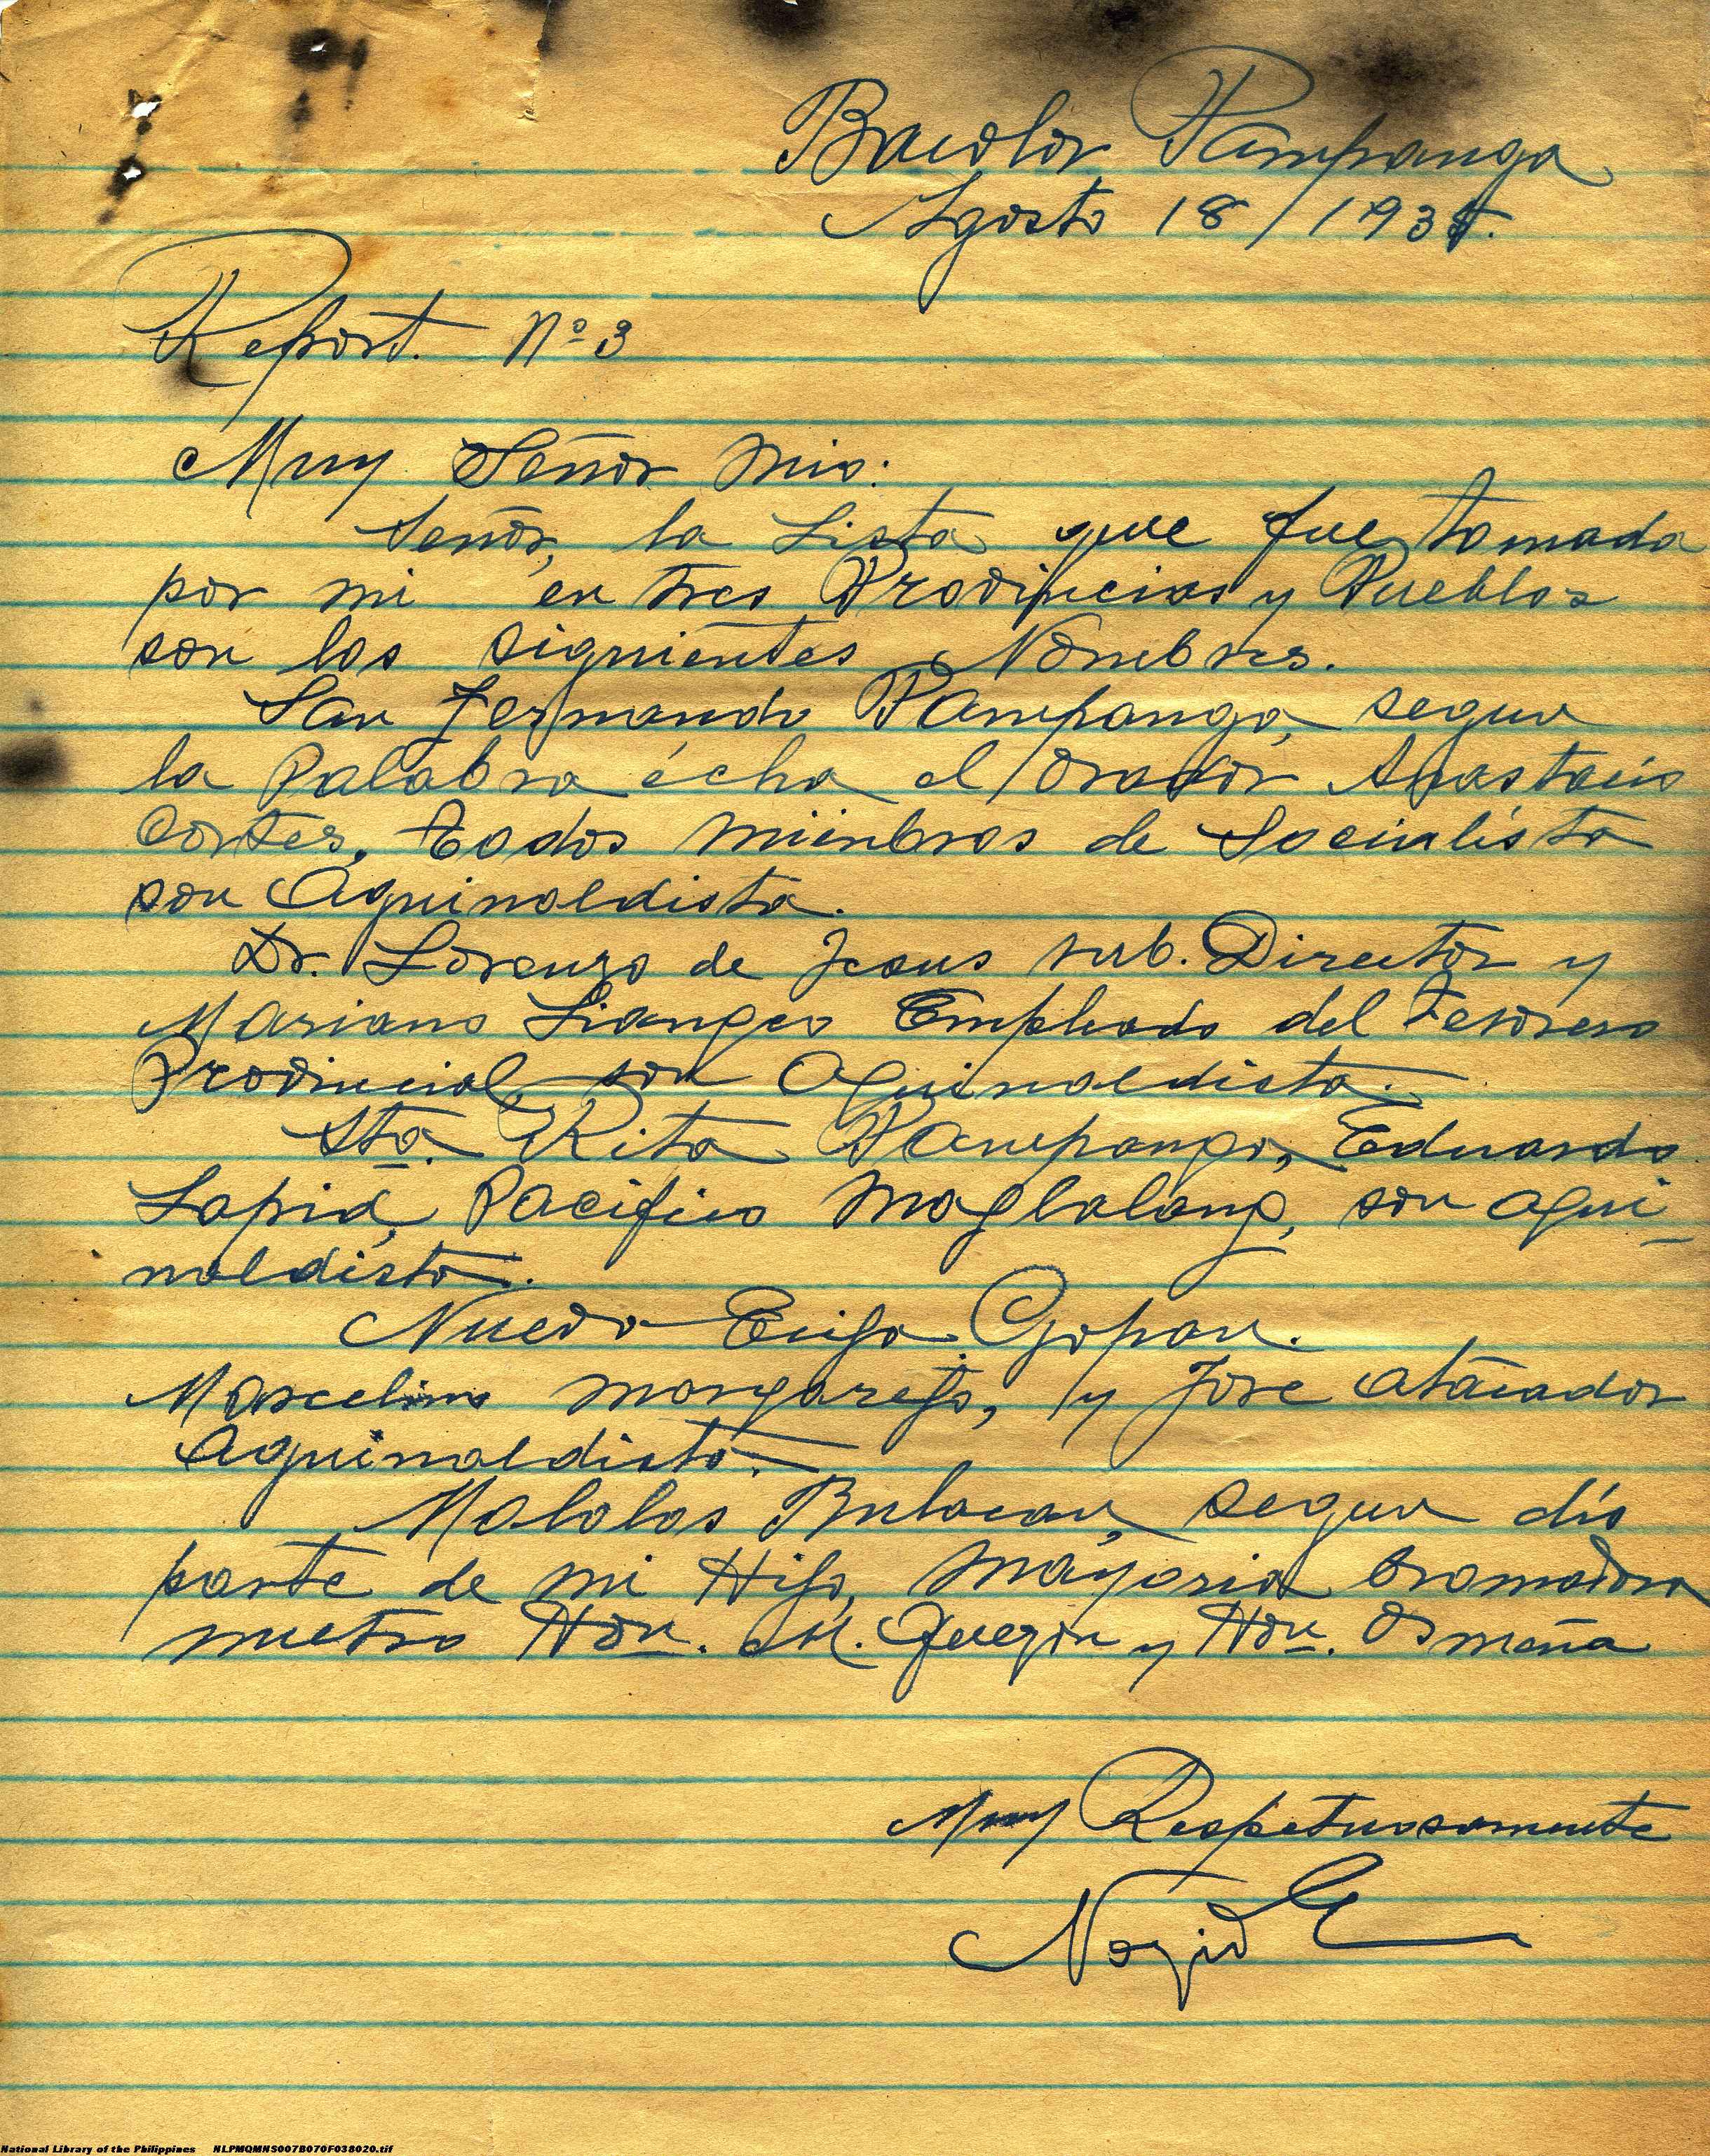 Bacolor Pampanga
Agosto 18/1935.
Report. Nº 3
Muy Señor mio:
Señor, la Lista que fue tomada
por mi en tres Provincias y Pueblos
son los siguientes Nombres.
San Fernando Pampanga, segun
la Palabra echa el Orador Anastacio
Cortes, Todos miinbros de Socialista
son Aquinaldista.
Dr. Lorenzo de Jesus sub. Director y
Mariano Liangco Empleado del Tesorero
Provincial, son Aquinaldista.
Sta. Rita Pampanga, Eduardo
Lapid, Pacifico Maglalang, son aqui
naldista.
Nueva Ecija Gapan.
Marcelino mangarejo, y Jose atacador
Aquinaldista.
Malolos Bulacan, segun dis
parte de mi Hijo, mayoria
nuetro Hon. M. Quezon y Hon. Osmeña
Muy Respetuosamente
National Library of the Philippines NLPMQMNS007B070F038020.tif